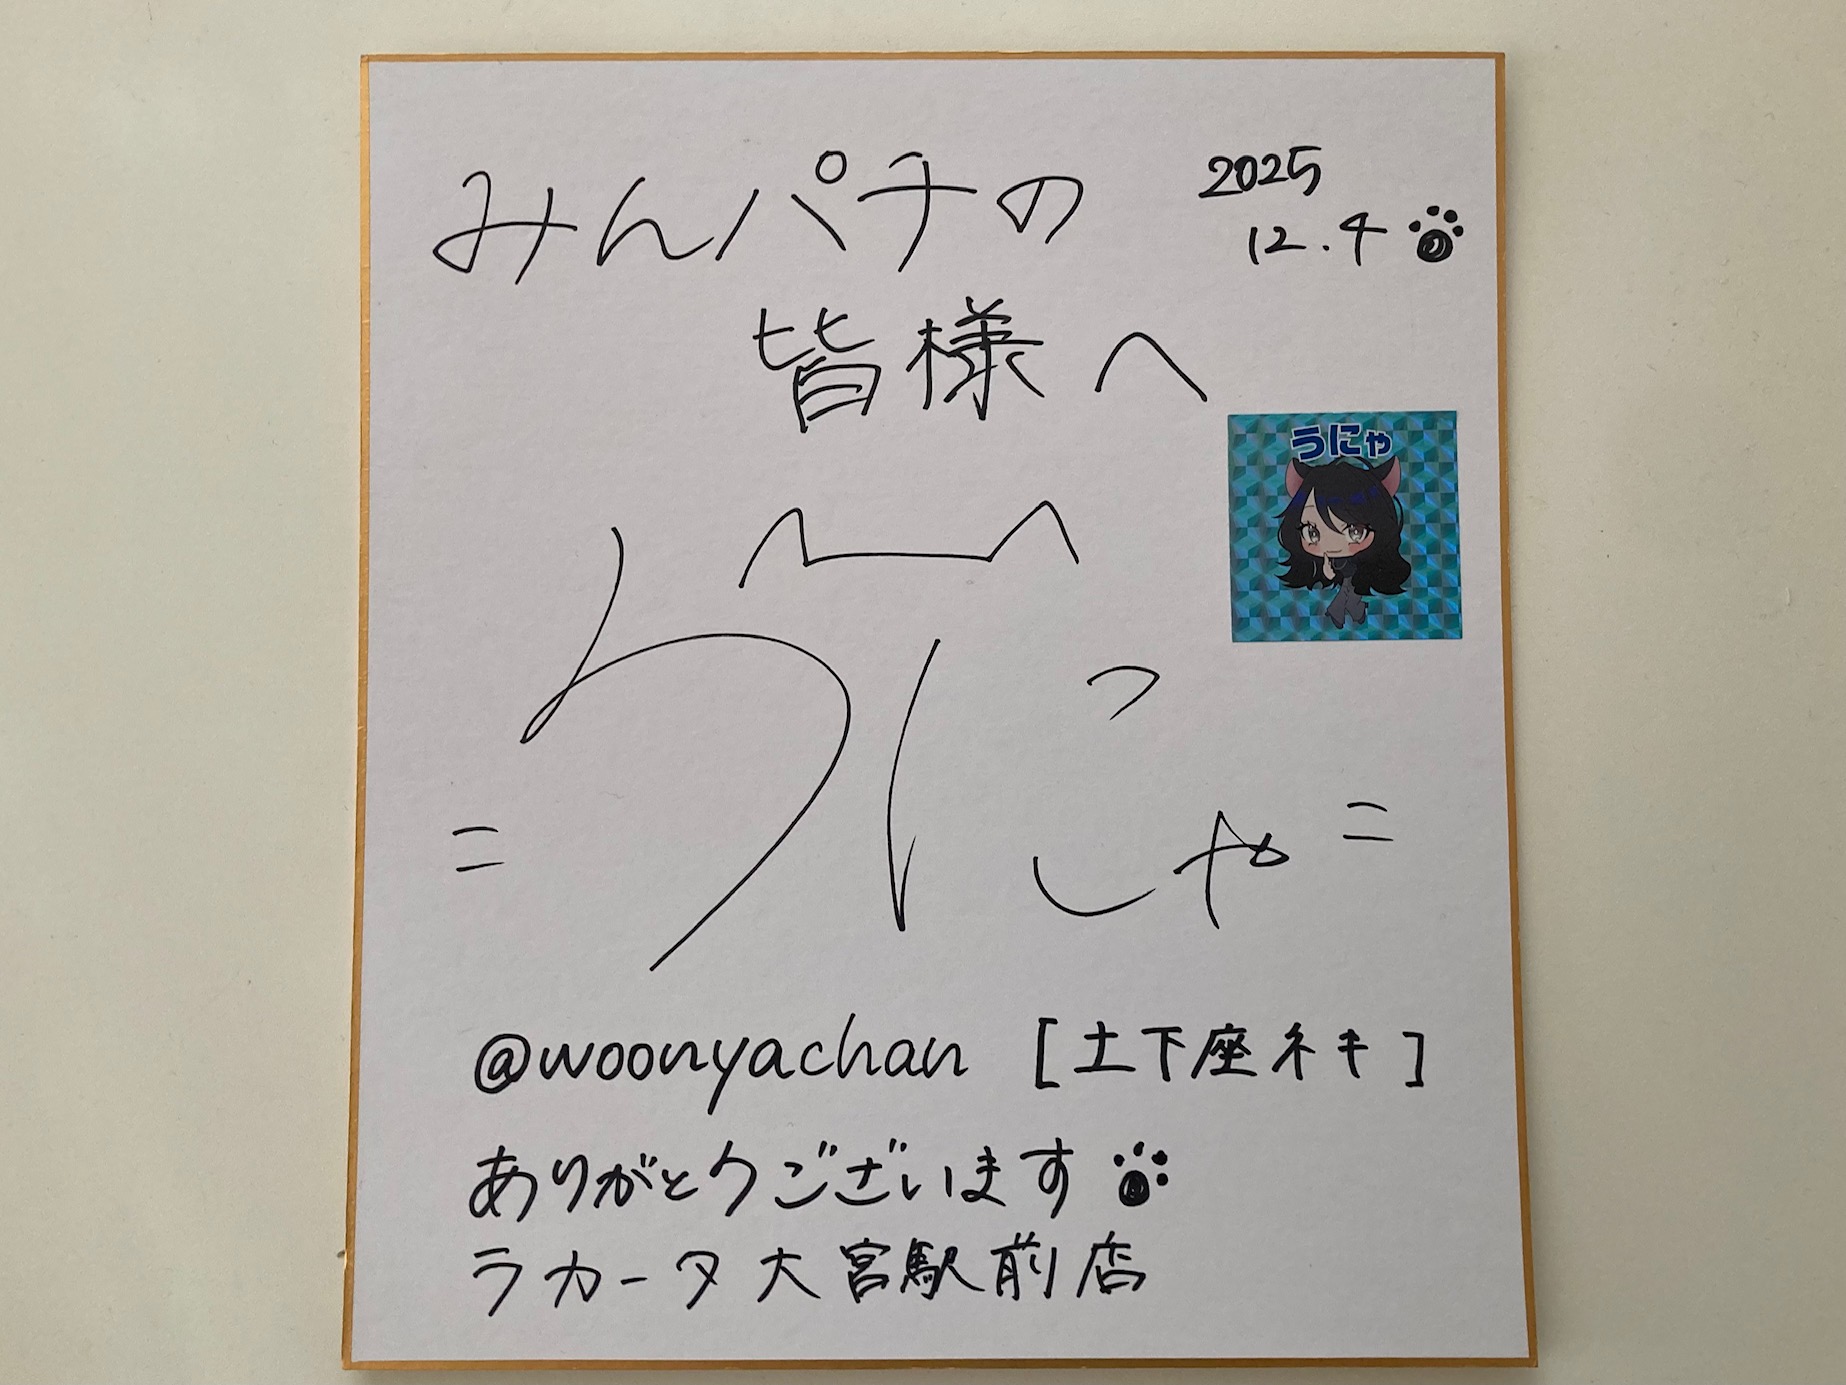 みんパチの
皆様へ
2025
12.4
うにゃ
=うにゃ=
@woonyachan [土下座ネキ]
ありがとうございます
ラカータ大宮駅前店